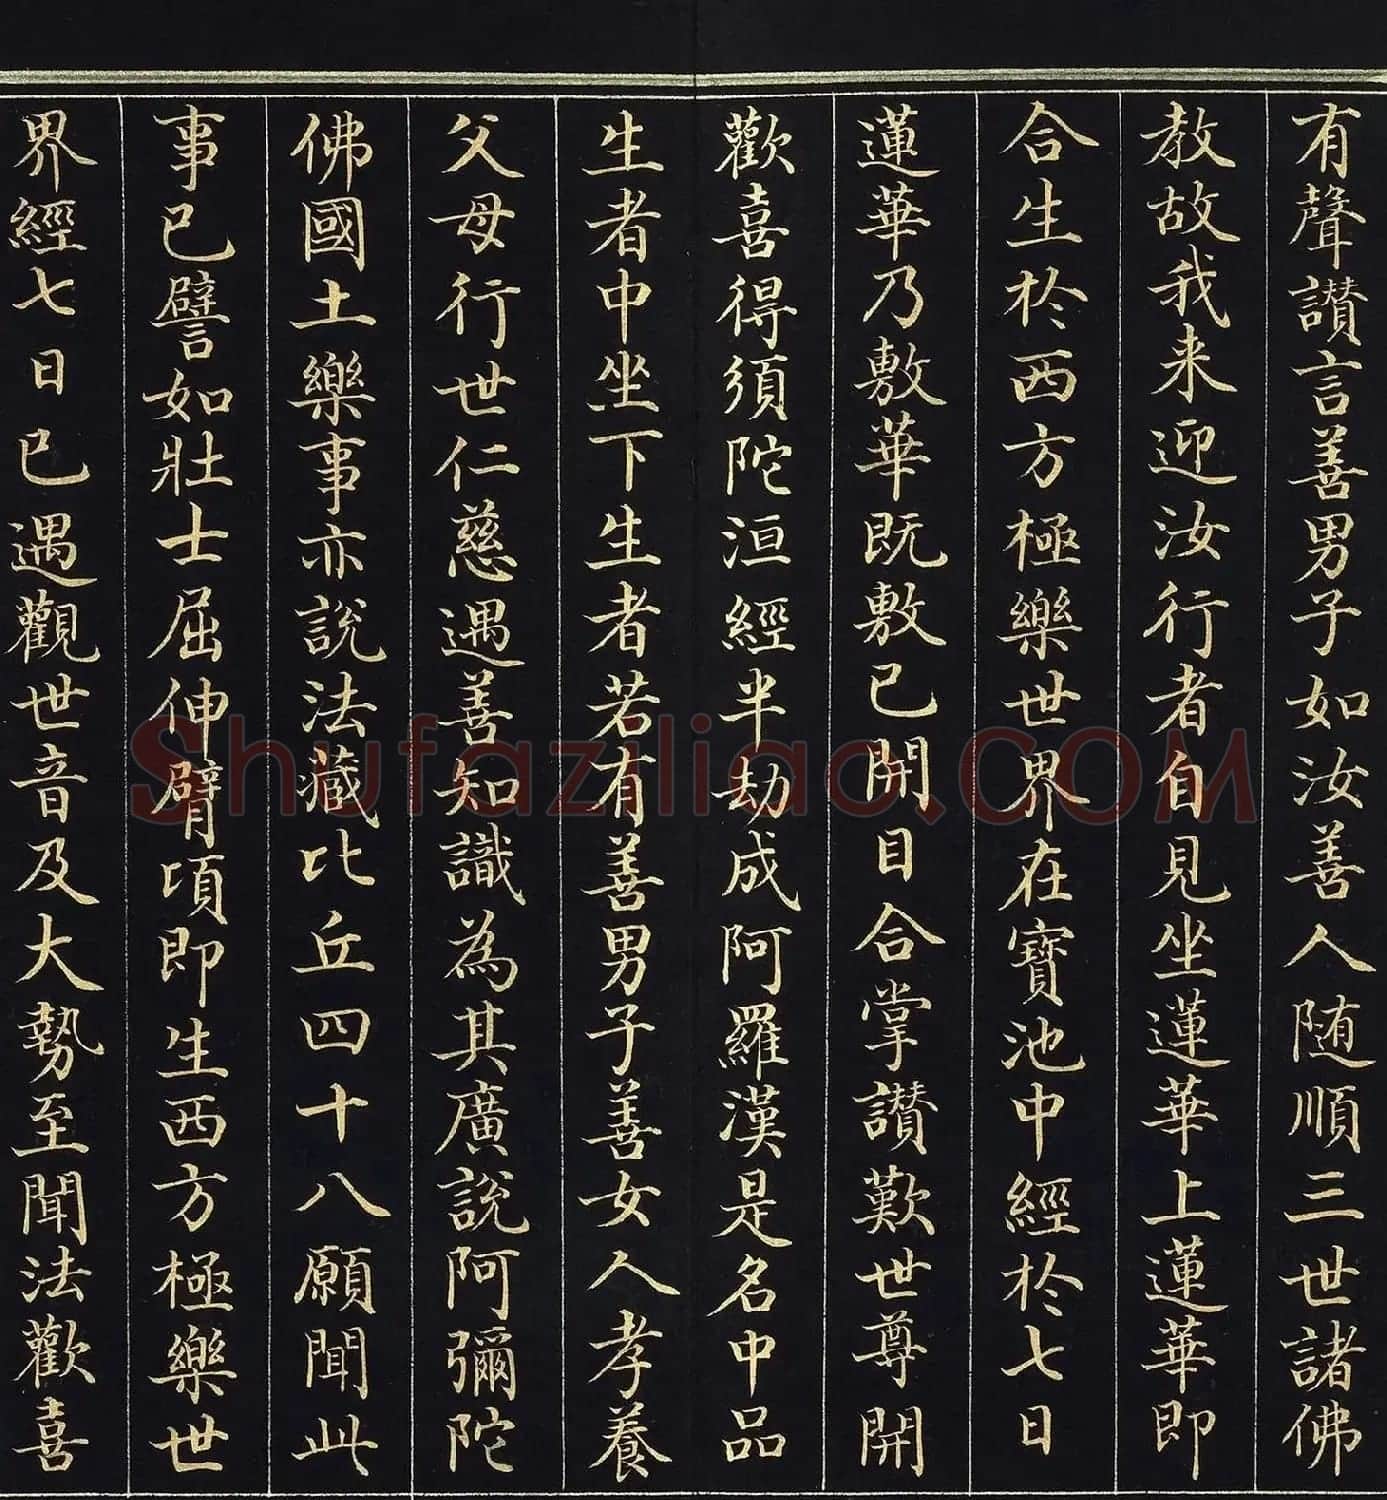 有聲讃言善男子如汝善人随順三世諸佛
教故我来迎汝行者自見坐蓮華上蓮華即
合生於西方極樂世界在寶池中經於七日
蓮華乃敷華既敷已開目合掌讃歎世尊聞
歡喜得須陀洹經半劫成阿羅漢是名中品
生者中坐下生者若有善男子善女人孝養
父母行世仁慈遇善知識為其廣說阿彌陀
佛國土樂事亦說法藏比丘四十八願聞此
事已譬如壯士屈伸臂項即生西方極樂世
界經七日已遇觀世音及大勢至聞法歡喜
Shufaziliao.COM